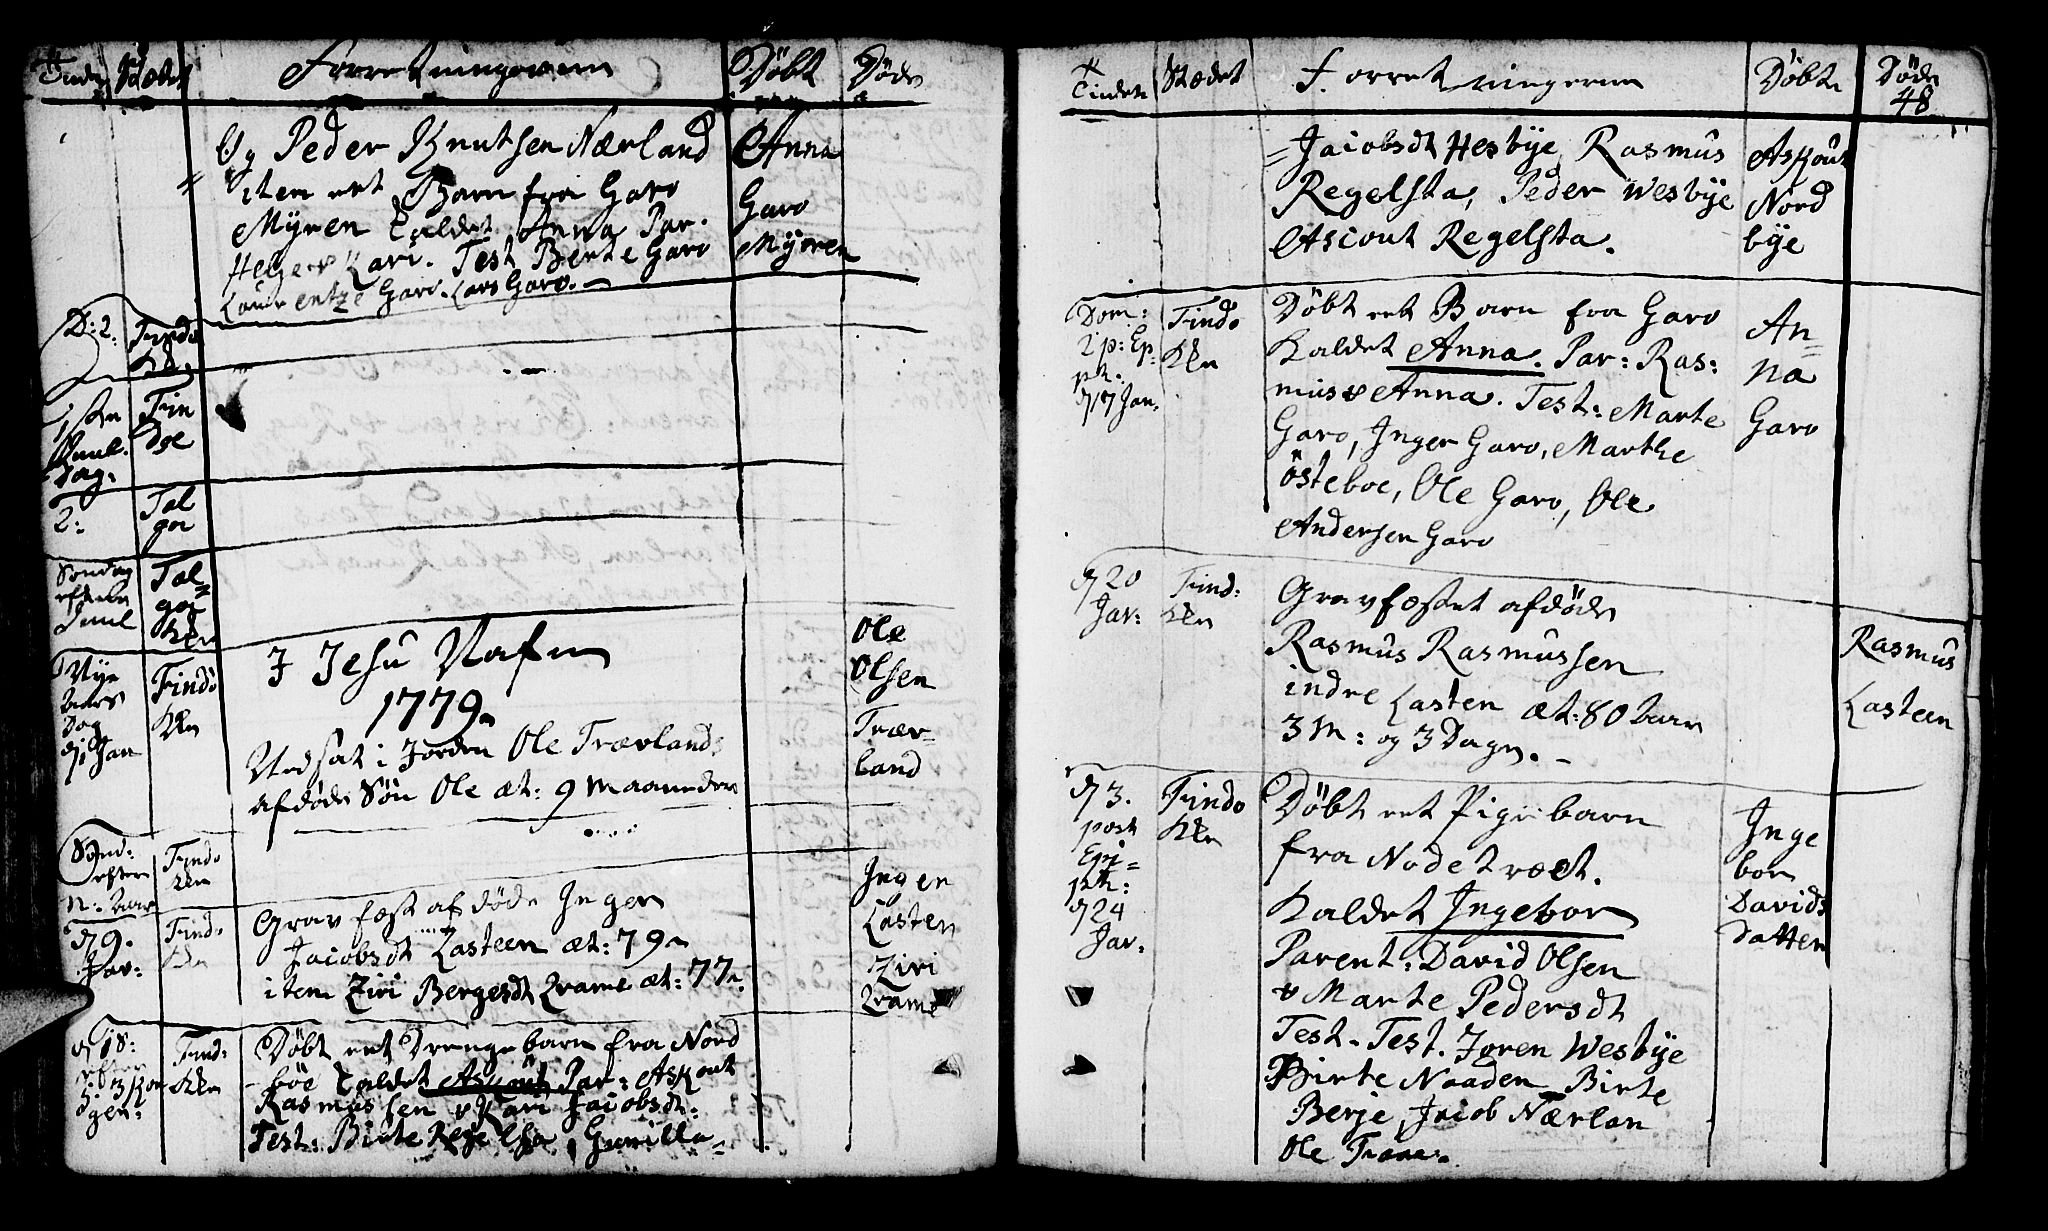 Tiden Stædet Forretningerne Døbt Døde
Og Peder Knutsen Nærland
iten eet Barn fra Garo
Myren kaldet Anna Par.
Helge & Kari. Test Berte Garo
Laurentze Garo. Lars Garo.
Anna
Garo
Myren
D: 2. Findø
Kken
1ste Juule
Dag:
Fin
døe
2: Tal
gø
Søndag
efter
Juul
Tal=
gø
Kken
Nye
Aars
Dag
d/1 Jan
Findø
Kken
I Jesu Nafn
1779
Nedsat i Jorden Ole Trævlands
afdøde Søn Ole æt: 9 Maaneder
Ole
Olsen
Træv=
land
Sønd:
efter
n: Aar
Findø
Kken
d/ 9.
Jar:
Find:
Kken
Gravfæst afdøde Inger
Jacobsdt Lasteen æt: 79
item Ziri Bergesdt Qvame æt: 77
Inger
Lasten
Ziri
Qvame
d/ 18:
efter
h: 3 Kon
gen:
Find:
Kken
Døbt eet Drengebarn fra Nord
bøe kaldet Askout, Par: Askout
Rasmussen & Kari Jacobsdt:
Test: Birte Regelsta, Gunilla=
Tiden Stædet Forretningerne Døbte Døde
48
=Jacobsdt Hesbye, Rasmus
Regelsta, Peder Wesbye
Ascout Regelsta.
Askout
Nord
bye
Dom:
2 p: Ep-
ph.
d/17 Jan.
Findø
Kken
Døbt eet Barn fra Garo
Kaldet Anna. Par: Ras:
mus & Anna. Test: Marte
Garo, Inger Garo, Marthe
østeboe, Ole Garo, Ole
Andersen Garo
An=
na
Garo
d/ 20
Jar:
Find:
Kken
Gravfæstet afdøde
Rasmus Rasmussen
indre Lasten æt: 80 Aar
3 M: og 3 Dage.
Rasmus
Lasteen
d/ 3.
post
Epi=
ph:
d/ 24
Jar:
Findø
Kken
Døbt eet Pigebarn
fra Nodetræet.
Kaldet Ingebor
Parent: David Olsen
& Marte Pedersdt
Test. Test. Joren Wesbye
Birte Naaden Birte
Berje, Jacob Nærlan
Ole
Inge
bor
Davids
Datter